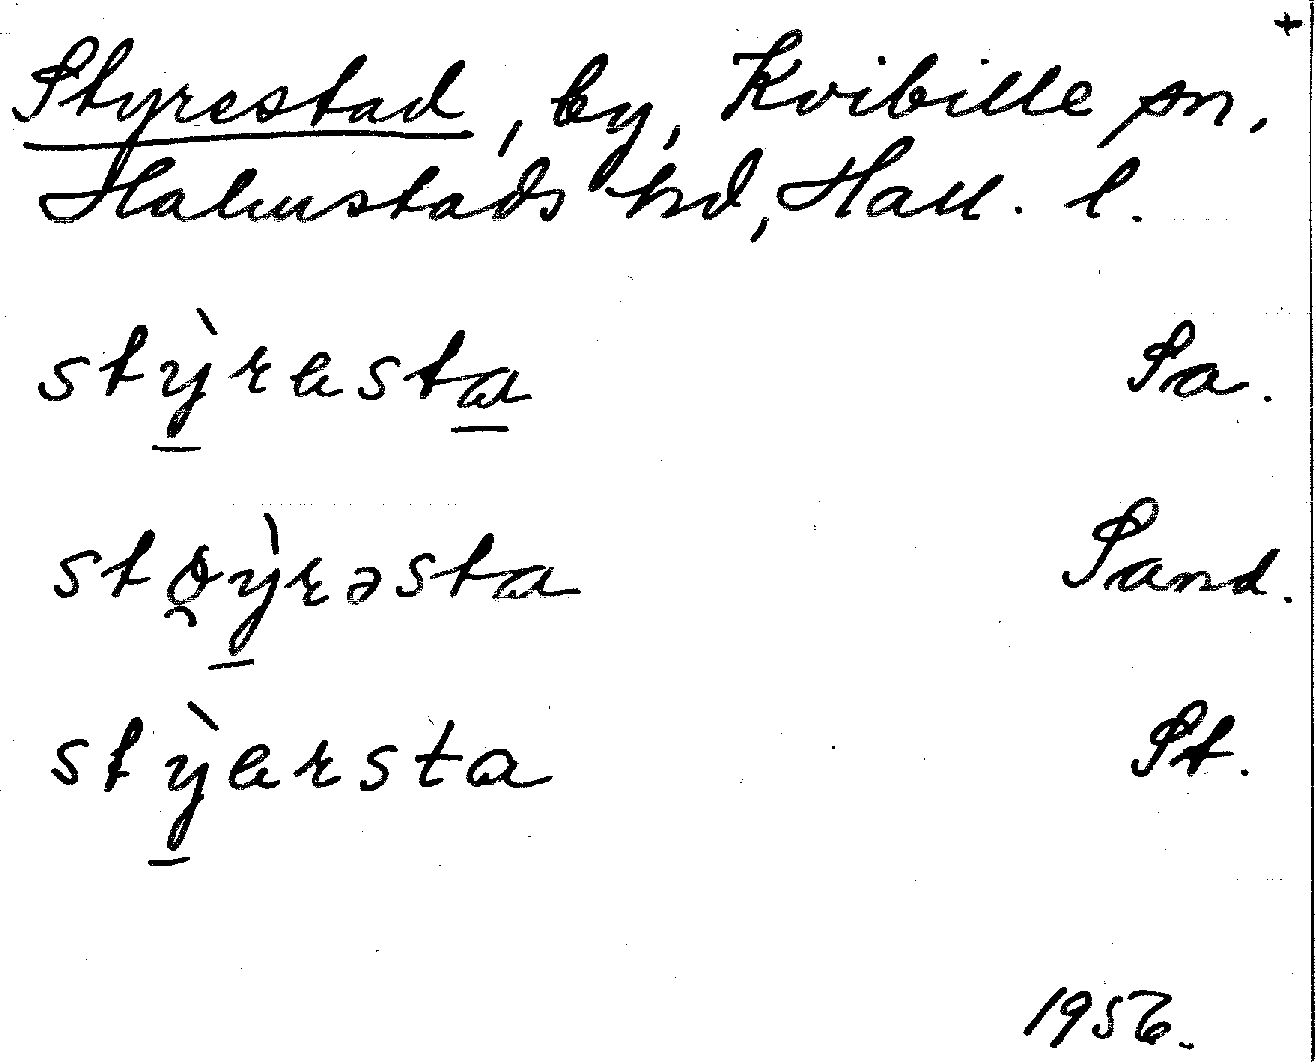 +
Styrestad, by, Kvibille sn,
Halmstads hd, Hall. l.
stỳ̱rɐsta̱ Sa.
stø̯ỳ̱rəsta Sand.
stỳ̱ɐrsta St.
1956.